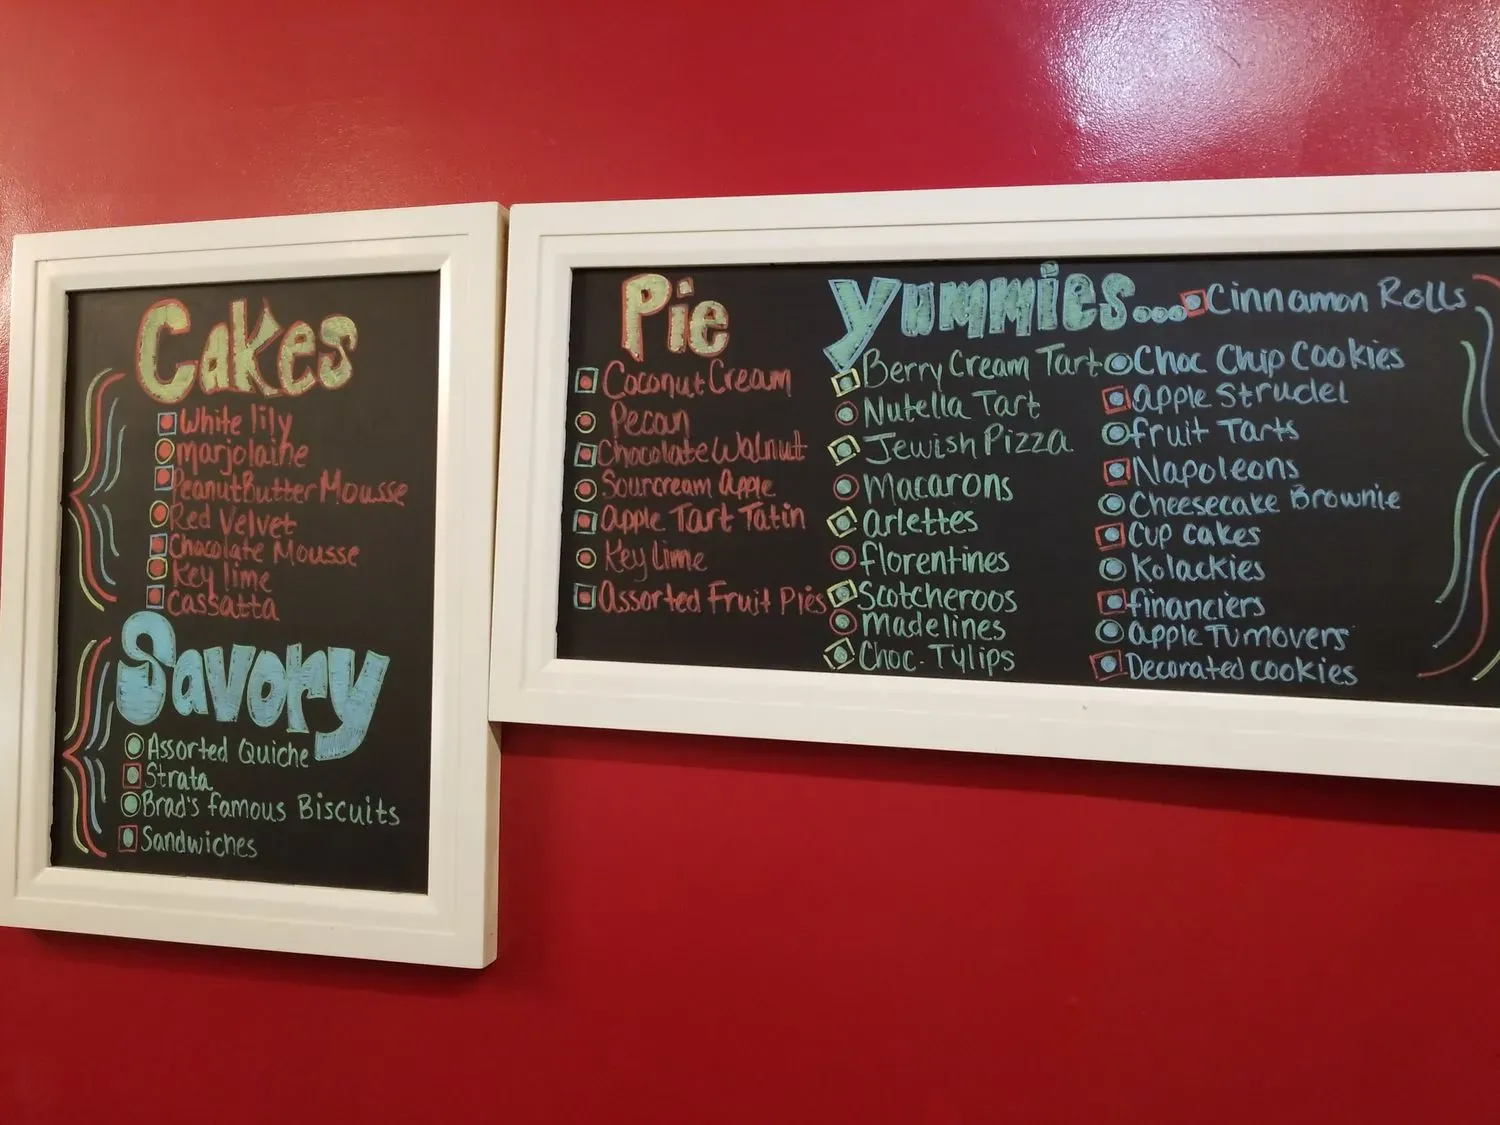 Cakes
White lily
marjolaine
PeanutButter Mousse
Red Velvet
Chocolate Mousse
Key lime
Cassatta
Savory
Assorted Quiche
Strata
Brad's famous Biscuits
Sandwiches
Pie
Coconut Cream
Pecan
Chocolate Walnut
Sourcream Apple
Apple Tart Tatin
Key lime
Assorted Fruit Pies
Yummies...
Berry Cream Tart
Nutella Tart
Jewish Pizza
Macarons
arlettes
florentines
Scotcheroos
madelines
Choc. Tylips
Cinnamon Rolls
Choc Chip Cookies
apple Strudel
fruit Tarts
Napoleons
Cheesecake Brownie
Cup cakes
Kolackies
financiers
apple Turnovers
Decorated cookies